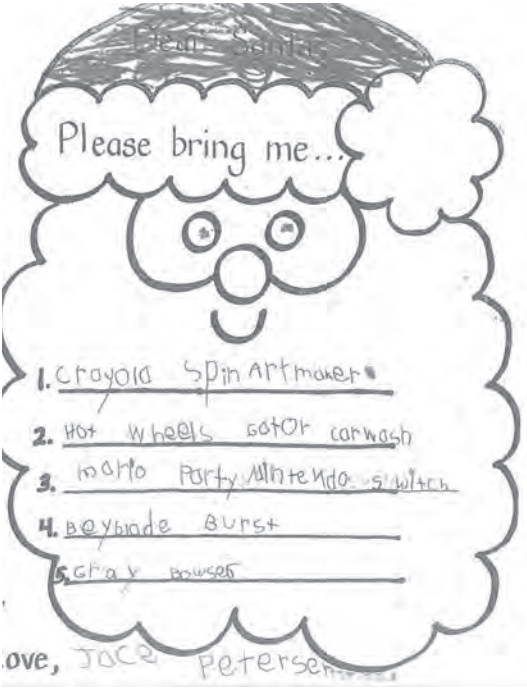 Dear Santa,
Please bring me...
1. Crayola Spin Artmaker
2. Hot Wheels Gator carwash
3. mario Party Nintendo switch
4. Beyblade Burst
5. Gray Bowser
ove, Jace Petersen